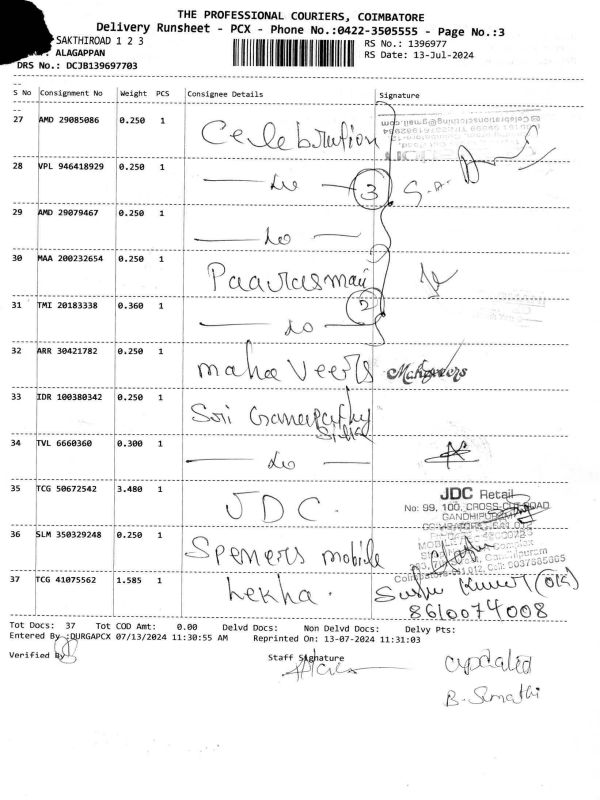 THE PROFESSIONAL COURIERS, COIMBATORE
Delivery Runsheet - PCX - Phone No.:0422-3505555 - Page No.:3
SAKTHIROAD 1 2 3
RS No.: 1396977
ALAGAPPAN
RS Date: 13-Jul-2024
DRS No.: DCJB139697703
S No Consignment No Weight PCS Consignee Details Signature
27 AMD 29085086 0.250 1 Celebration
28 VPL 946418929 0.250 1 — do — 3
29 AMD 29079467 0.250 1 — do —
30 MAA 200232654 0.250 1 Paavrasmani
31 TMI 20183338 0.360 1 — do — 2
32 ARR 30421782 0.250 1 maha Veers
33 IDR 100380342 0.250 1 Sri Ganapathy
34 TVL 6660360 0.300 1 — do —
35 TCG 50672542 3.480 1 JDC. JDC Retail
No: 99, 100, CROSS-CUT ROAD
GANDHIPURAM
36 SLM 350329248 0.250 1 Speners mobile
37 TCG 41075562 1.585 1 Lekha.
8610074008
Tot Docs: 37 Tot COD Amt: 0.00 Delvd Docs: Non Delvd Docs: Delvy Pts:
Entered By :DURGAPCX 07/13/2024 11:30:55 AM Reprinted On: 13-07-2024 11:31:03
Verified By
Staff Signature
updated
B. Sumathi